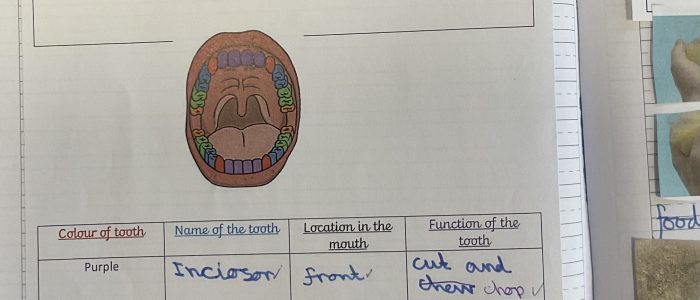 Colour of tooth Name of the tooth Location in the mouth Function of the tooth
Purple Inciosor front cut and
chew chop
food